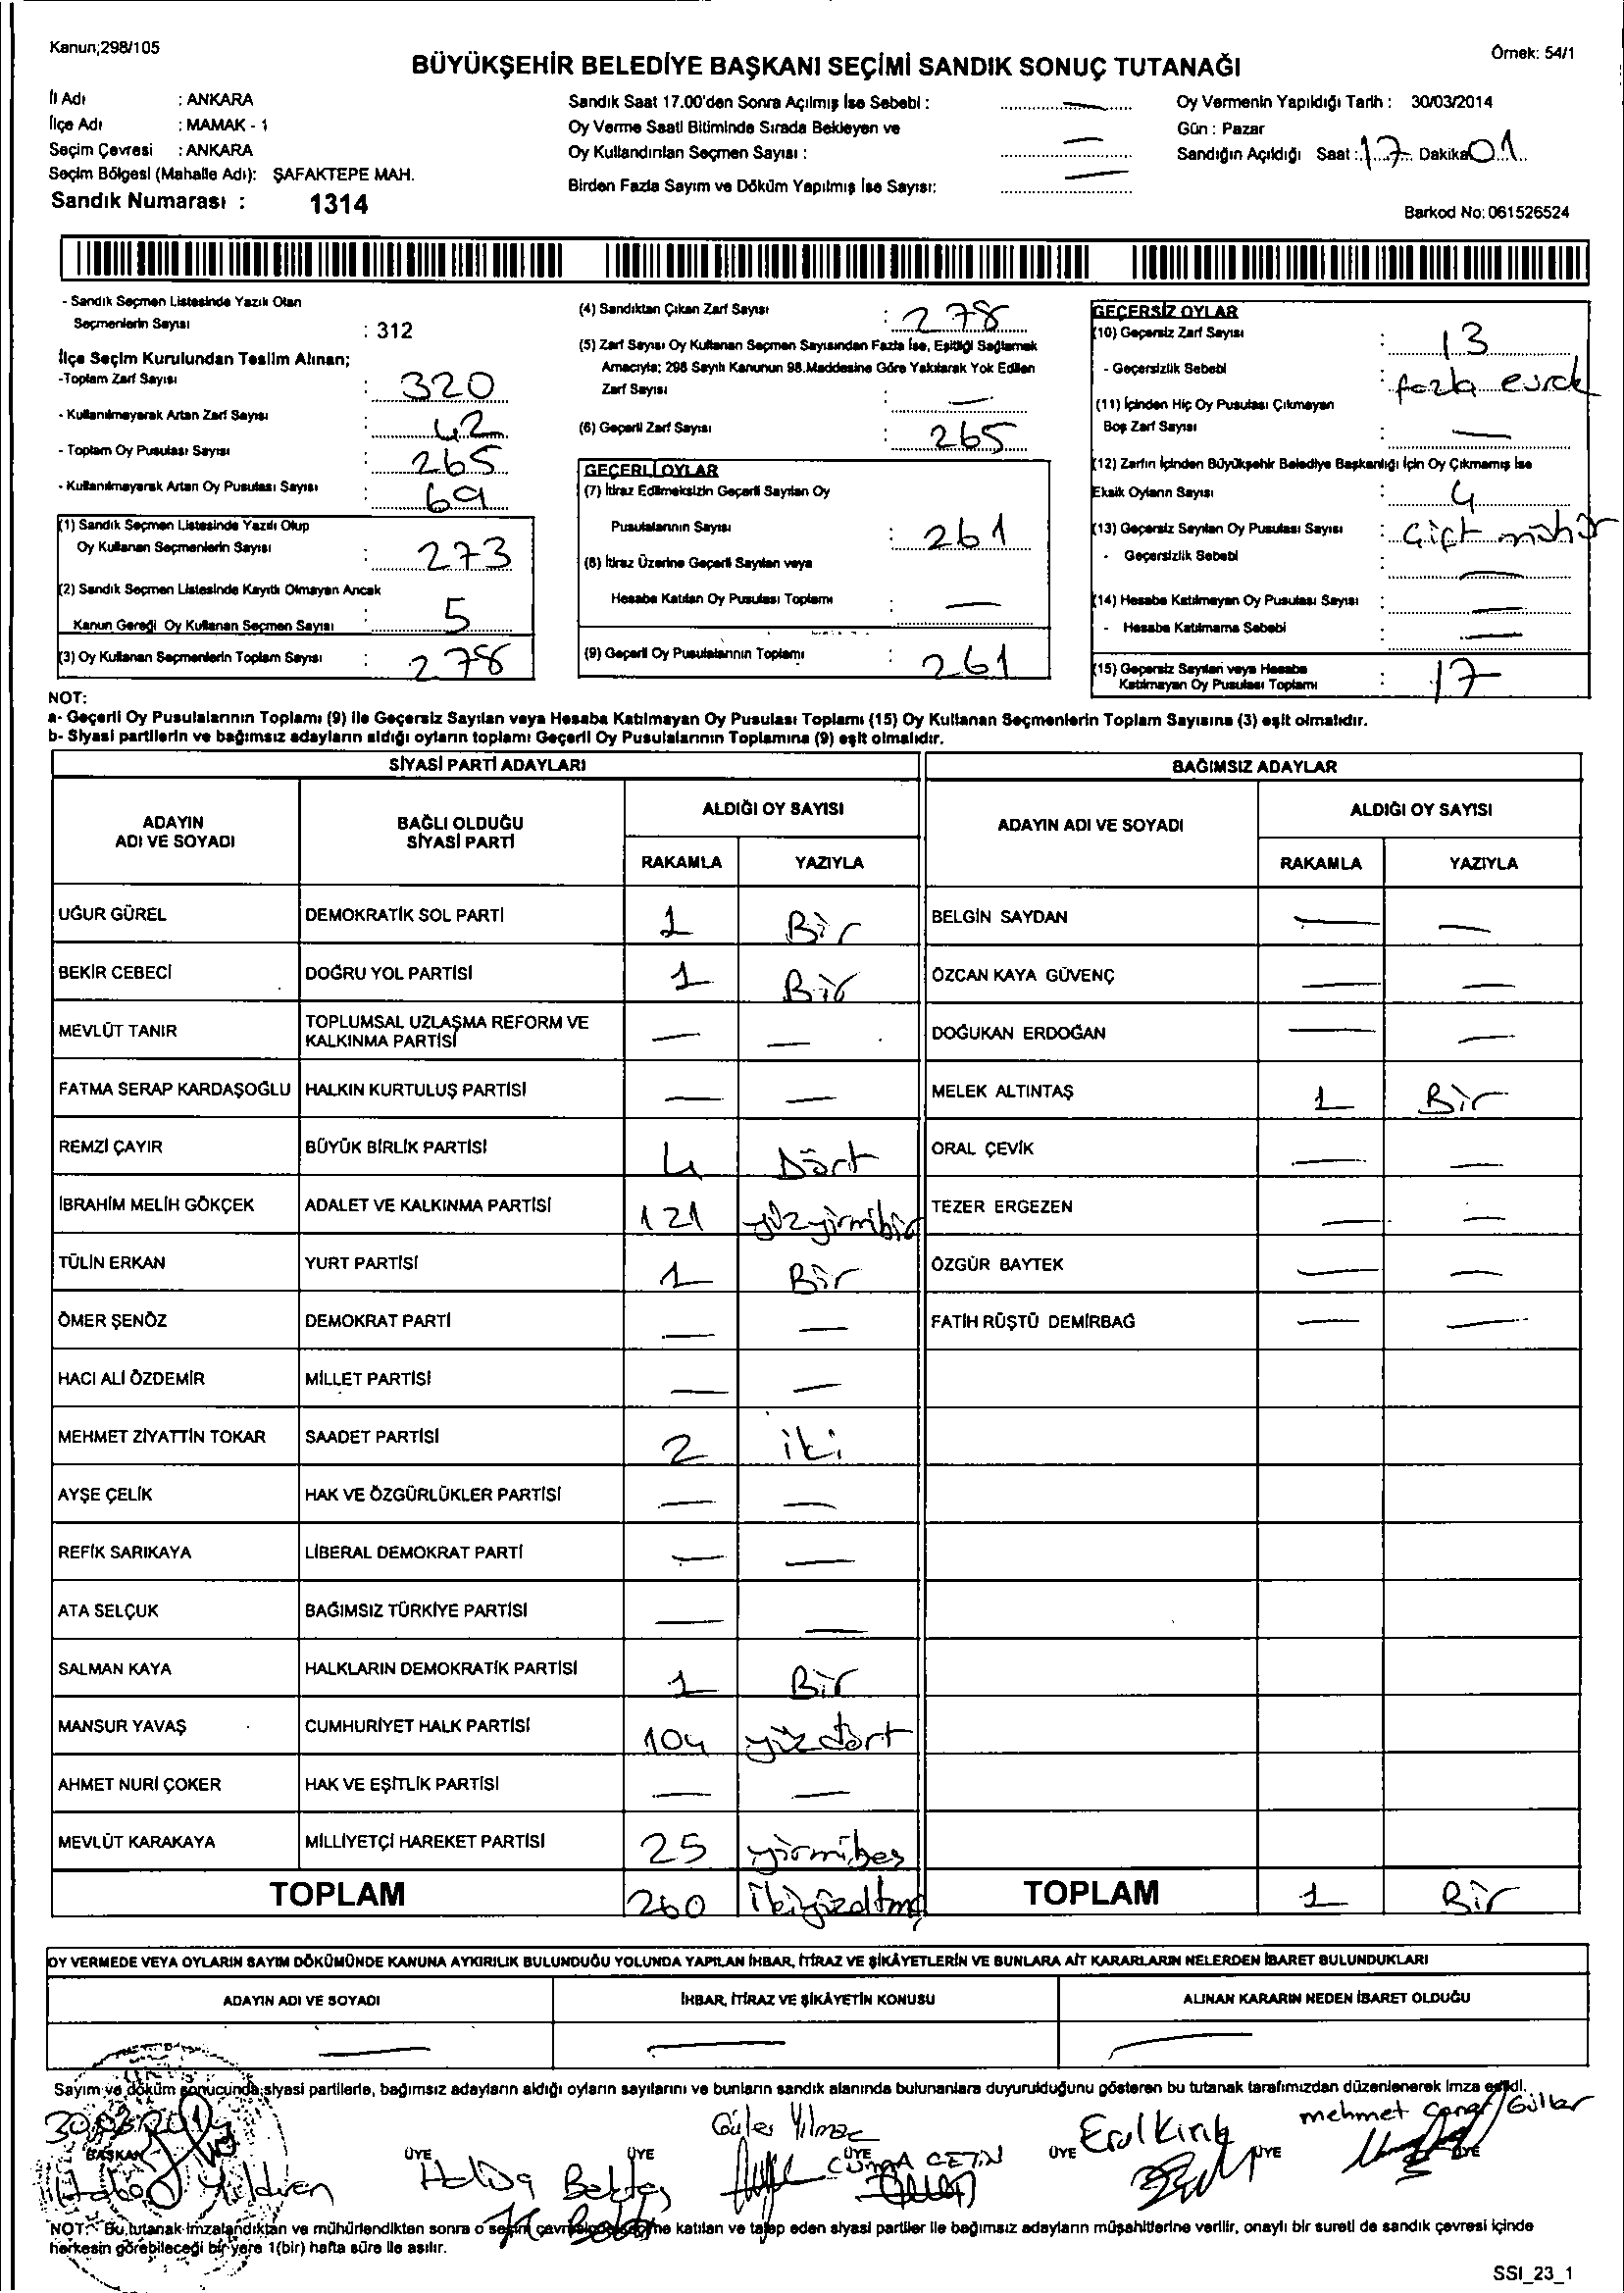 Kanun;298/105
Örnek: 54/1
BÜYÜKŞEHİR BELEDİYE BAŞKANI SEÇİMİ SANDIK SONUÇ TUTANAĞI
İl Adı : ANKARA
İlçe Adı : MAMAK - 1
Seçim Çevresi : ANKARA
Seçim Bölgesi (Mahalle Adı): ŞAFAKTEPE MAH.
Sandık Numarası : 1314
Sandık Saat 17.00'den Sonra Açılmış İse Sebebi : —
Oy Verme Saati Bitiminde Sırada Bekleyen ve
Oy Kullandırılan Seçmen Sayısı : —
Birden Fazla Sayım ve Döküm Yapılmış İse Sayısı: —
Oy Vermenin Yapıldığı Tarih : 30/03/2014
Gün : Pazar
Sandığın Açıldığı Saat : 17 Dakika 01
Barkod No: 061526524
- Sandık Seçmen Listesinde Yazılı Olan
Seçmenlerin Sayısı : 312
İlçe Seçim Kurulundan Teslim Alınan;
-Toplam Zarf Sayısı : 320
- Kullanılmayarak Artan Zarf Sayısı : 42
- Toplam Oy Pusulası Sayısı : 265
- Kullanılmayarak Artan Oy Pusulası Sayısı : 69
(1) Sandık Seçmen Listesinde Yazılı Olup
Oy Kullanan Seçmenlerin Sayısı : 273
(2) Sandık Seçmen Listesinde Kayıtlı Olmayan Ancak
Kanun Gereği Oy Kullanan Seçmen Sayısı : 5
(3) Oy Kullanan Seçmenlerin Toplam Sayısı : 278
(4) Sandıktan Çıkan Zarf Sayısı : 278
(5) Zarf Sayısı Oy Kullanan Seçmen Sayısından Fazla İse, Eşitliği Sağlamak
Amacıyla; 298 Sayılı Kanunun 98.Maddesine Göre Yakılarak Yok Edilen
Zarf Sayısı : —
(6) Geçerli Zarf Sayısı : 265
GEÇERLİ OYLAR
(7) İtiraz Edilmeksizin Geçerli Sayılan Oy
Pusulalarının Sayısı : 261
(8) İtiraz Üzerine Geçerli Sayılan veya
Hesaba Katılan Oy Pusulası Toplamı : —
(9) Geçerli Oy Pusulalarının Toplamı : 261
GEÇERSİZ OYLAR
(10) Geçersiz Zarf Sayısı : 13
- Geçersizlik Sebebi : fazla evrak
(11) İçinden Hiç Oy Pusulası Çıkmayan
Boş Zarf Sayısı : —
(12) Zarfın İçinden Büyükşehir Belediye Başkanlığı İçin Oy Çıkmamış İse
Eksik Oyların Sayısı : 4
(13) Geçersiz Sayılan Oy Pusulası Sayısı : Çift mühür
- Geçersizlik Sebebi : —
(14) Hesaba Katılmayan Oy Pusulası Sayısı : —
- Hesaba Katılmama Sebebi : —
(15) Geçersiz Sayılan veya Hesaba
Katılmayan Oy Pusulası Toplamı : 17
NOT:
a- Geçerli Oy Pusulalarının Toplamı (9) ile Geçersiz Sayılan veya Hesaba Katılmayan Oy Pusulası Toplamı (15) Oy Kullanan Seçmenlerin Toplam Sayısına (3) eşit olmalıdır.
b- Siyasi partilerin ve bağımsız adayların aldığı oyların toplamı Geçerli Oy Pusulalarının Toplamına (9) eşit olmalıdır.
SİYASİ PARTİ ADAYLARI BAĞIMSIZ ADAYLAR
ADAYIN ADI VE SOYADI BAĞLI OLDUĞU SİYASİ PARTİ ALDIĞI OY SAYISI ADAYIN ADI VE SOYADI ALDIĞI OY SAYISI
RAKAMLA YAZIYLA RAKAMLA YAZIYLA
UĞUR GÜREL DEMOKRATİK SOL PARTİ 1 Bir BELGİN SAYDAN — —
BEKİR CEBECİ DOĞRU YOL PARTİSİ 1 Bir ÖZCAN KAYA GÜVENÇ — —
MEVLÜT TANIR TOPLUMSAL UZLAŞMA REFORM VE KALKINMA PARTİSİ — — DOĞUKAN ERDOĞAN — —
FATMA SERAP KARDAŞOĞLU HALKIN KURTULUŞ PARTİSİ — — MELEK ALTINTAŞ 1 Bir
REMZİ ÇAYIR BÜYÜK BİRLİK PARTİSİ 4 Dört ORAL ÇEVİK — —
İBRAHİM MELİH GÖKÇEK ADALET VE KALKINMA PARTİSİ 121 yüzyirmibir TEZER ERGEZEN — —
TÜLİN ERKAN YURT PARTİSİ 1 Bir ÖZGÜR BAYTEK — —
ÖMER ŞENÖZ DEMOKRAT PARTİ — — FATİH RÜŞTÜ DEMİRBAĞ — —
HACI ALİ ÖZDEMİR MİLLET PARTİSİ — —
MEHMET ZİYATTİN TOKAR SAADET PARTİSİ 2 iki
AYŞE ÇELİK HAK VE ÖZGÜRLÜKLER PARTİSİ — —
REFİK SARIKAYA LİBERAL DEMOKRAT PARTİ — —
ATA SELÇUK BAĞIMSIZ TÜRKİYE PARTİSİ — —
SALMAN KAYA HALKLARIN DEMOKRATİK PARTİSİ 1 Bir
MANSUR YAVAŞ CUMHURİYET HALK PARTİSİ 104 yüzdört
AHMET NURİ ÇOKER HAK VE EŞİTLİK PARTİSİ — —
MEVLÜT KARAKAYA MİLLİYETÇİ HAREKET PARTİSİ 25 yirmibeş
TOPLAM 260 ikiyüzaltmış TOPLAM 1 Bir
OY VERMEDE VEYA OYLARIN SAYIM DÖKÜMÜNDE KANUNA AYKIRILIK BULUNDUĞU YOLUNDA YAPILAN İHBAR, İTİRAZ VE ŞİKÂYETLERİN VE BUNLARA AİT KARARLARIN NELERDEN İBARET BULUNDUKLARI
ADAYIN ADI VE SOYADI İHBAR, İTİRAZ VE ŞİKÂYETİN KONUSU ALINAN KARARIN NEDEN İBARET OLDUĞU
— — —
Sayım ve döküm sonucunda siyasi partilerle, bağımsız adayların aldığı oyların sayılarını ve bunların sandık alanında bulunanlara duyurulduğunu gösteren bu tutanak tarafımızdan düzenlenerek imza edildi.
30.03.2014 Güler Yılmaz Erol Kırık mehmet
BAŞKAN ÜYE ÜYE ÜYE ÜYE ÜYE ÜYE
Yıldıran Bektaş CUMA ÇETİN
NOT: Bu tutanak imzalandıktan ve mühürlendikten sonra o seçim çevresinde seçime katılan ve talep eden siyasi partiler ile bağımsız adayların müşahitlerine verilir, onaylı bir sureti de sandık çevresi içinde
herkesin görebileceği bir yere 1(bir) hafta süre ile asılır.
SSI_23_1